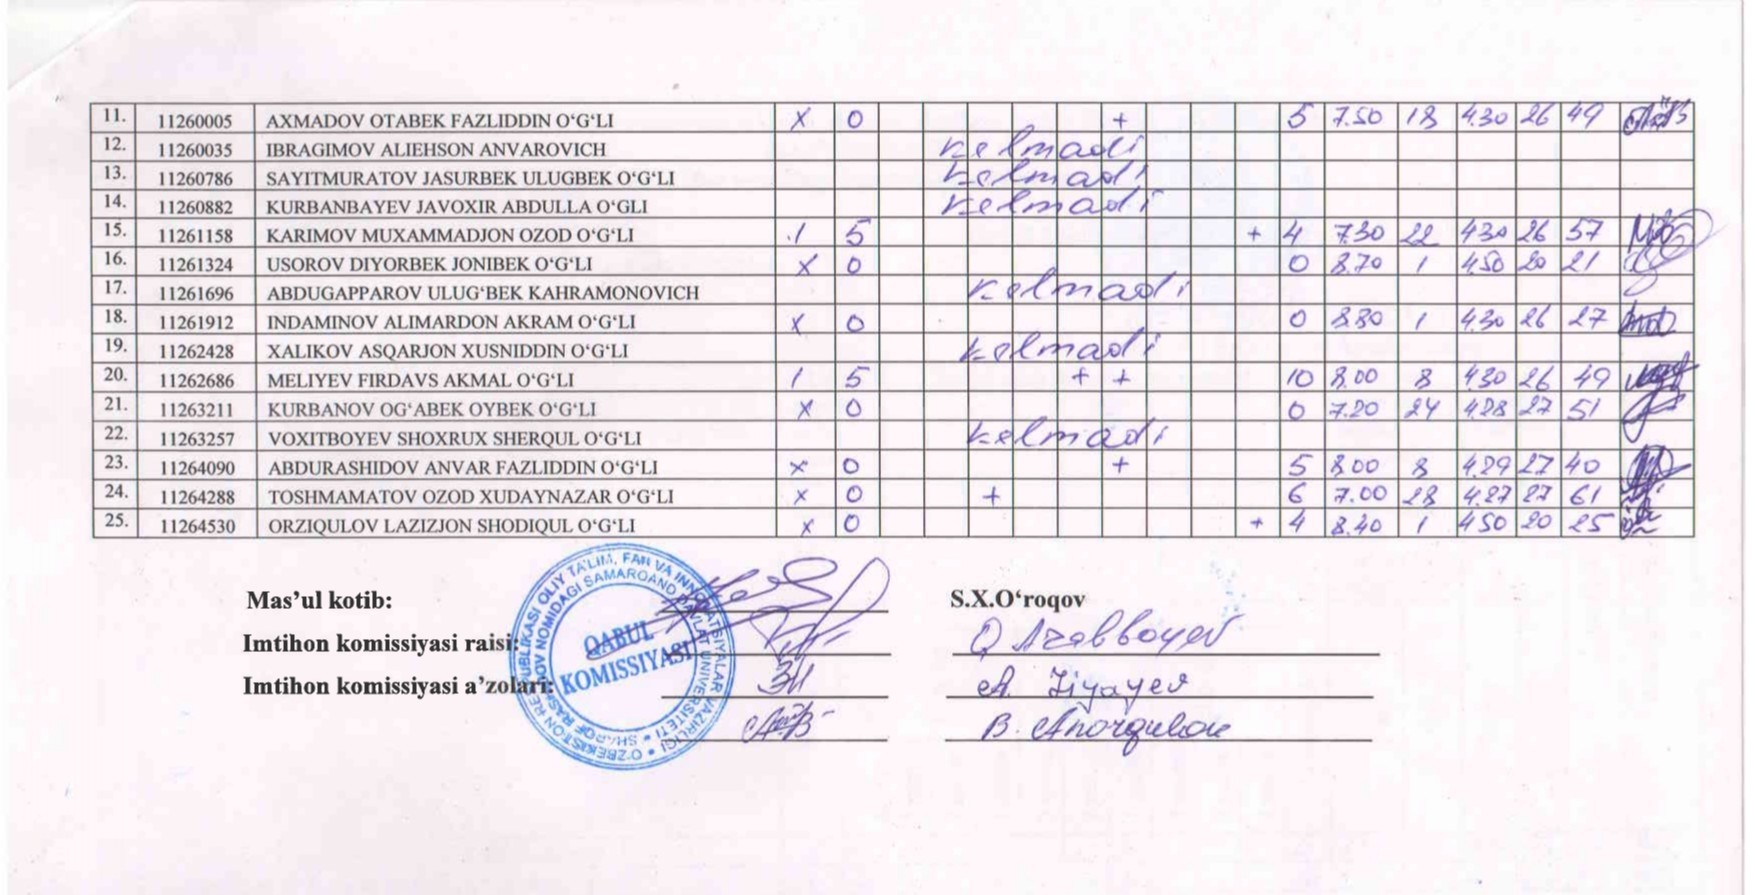 11. 11260005 AXMADOV OTABEK FAZLIDDIN O‘G‘LI X 0 + 5 7.50 18 430 26 49
12. 11260035 IBRAGIMOV ALIEHSON ANVAROVICH Kelmadi
13. 11260786 SAYITMURATOV JASURBEK ULUGBEK O‘G‘LI Kelmadi
14. 11260882 KURBANBAYEV JAVOXIR ABDULLA O‘GLI Kelmadi
15. 11261158 KARIMOV MUXAMMADJON OZOD O‘G‘LI 1 5 + 4 7.30 22 430 26 57
16. 11261324 USOROV DIYORBEK JONIBEK O‘G‘LI X 0 0 8.70 1 450 20 21
17. 11261696 ABDUGAPPAROV ULUG‘BEK KAHRAMONOVICH Kelmadi
18. 11261912 INDAMINOV ALIMARDON AKRAM O‘G‘LI X 0 0 8.80 1 430 26 27
19. 11262428 XALIKOV ASQARJON XUSNIDDIN O‘G‘LI Kelmadi
20. 11262686 MELIYEV FIRDAVS AKMAL O‘G‘LI 1 5 + + 10 8.00 8 430 26 49
21. 11263211 KURBANOV OG‘ABEK OYBEK O‘G‘LI X 0 0 7.20 24 428 27 51
22. 11263257 VOXITBOYEV SHOXRUX SHERQUL O‘G‘LI Kelmadi
23. 11264090 ABDURASHIDOV ANVAR FAZLIDDIN O‘G‘LI x 0 + 5 8.00 8 4.29 27 40
24. 11264288 TOSHMAMATOV OZOD XUDAYNAZAR O‘G‘LI x 0 + 6 7.00 28 4.27 27 61
25. 11264530 ORZIQULOV LAZIZJON SHODIQUL O‘G‘LI x 0 + 4 8.40 1 450 20 25
Mas’ul kotib: S.X.O‘roqov
Imtihon komissiyasi raisi: Q Arabboyev
Imtihon komissiyasi a’zolari: A. Ziyayev
B. Anorqulov
QABUL
KOMISSIYASI
O‘ZBEKISTON RESPUBLIKASI OLIY TA’LIM, FAN VA INNOVATSIYALAR VAZIRLIGI
SHAROF RASHIDOV NOMIDAGI SAMARQAND DAVLAT UNIVERSITETI